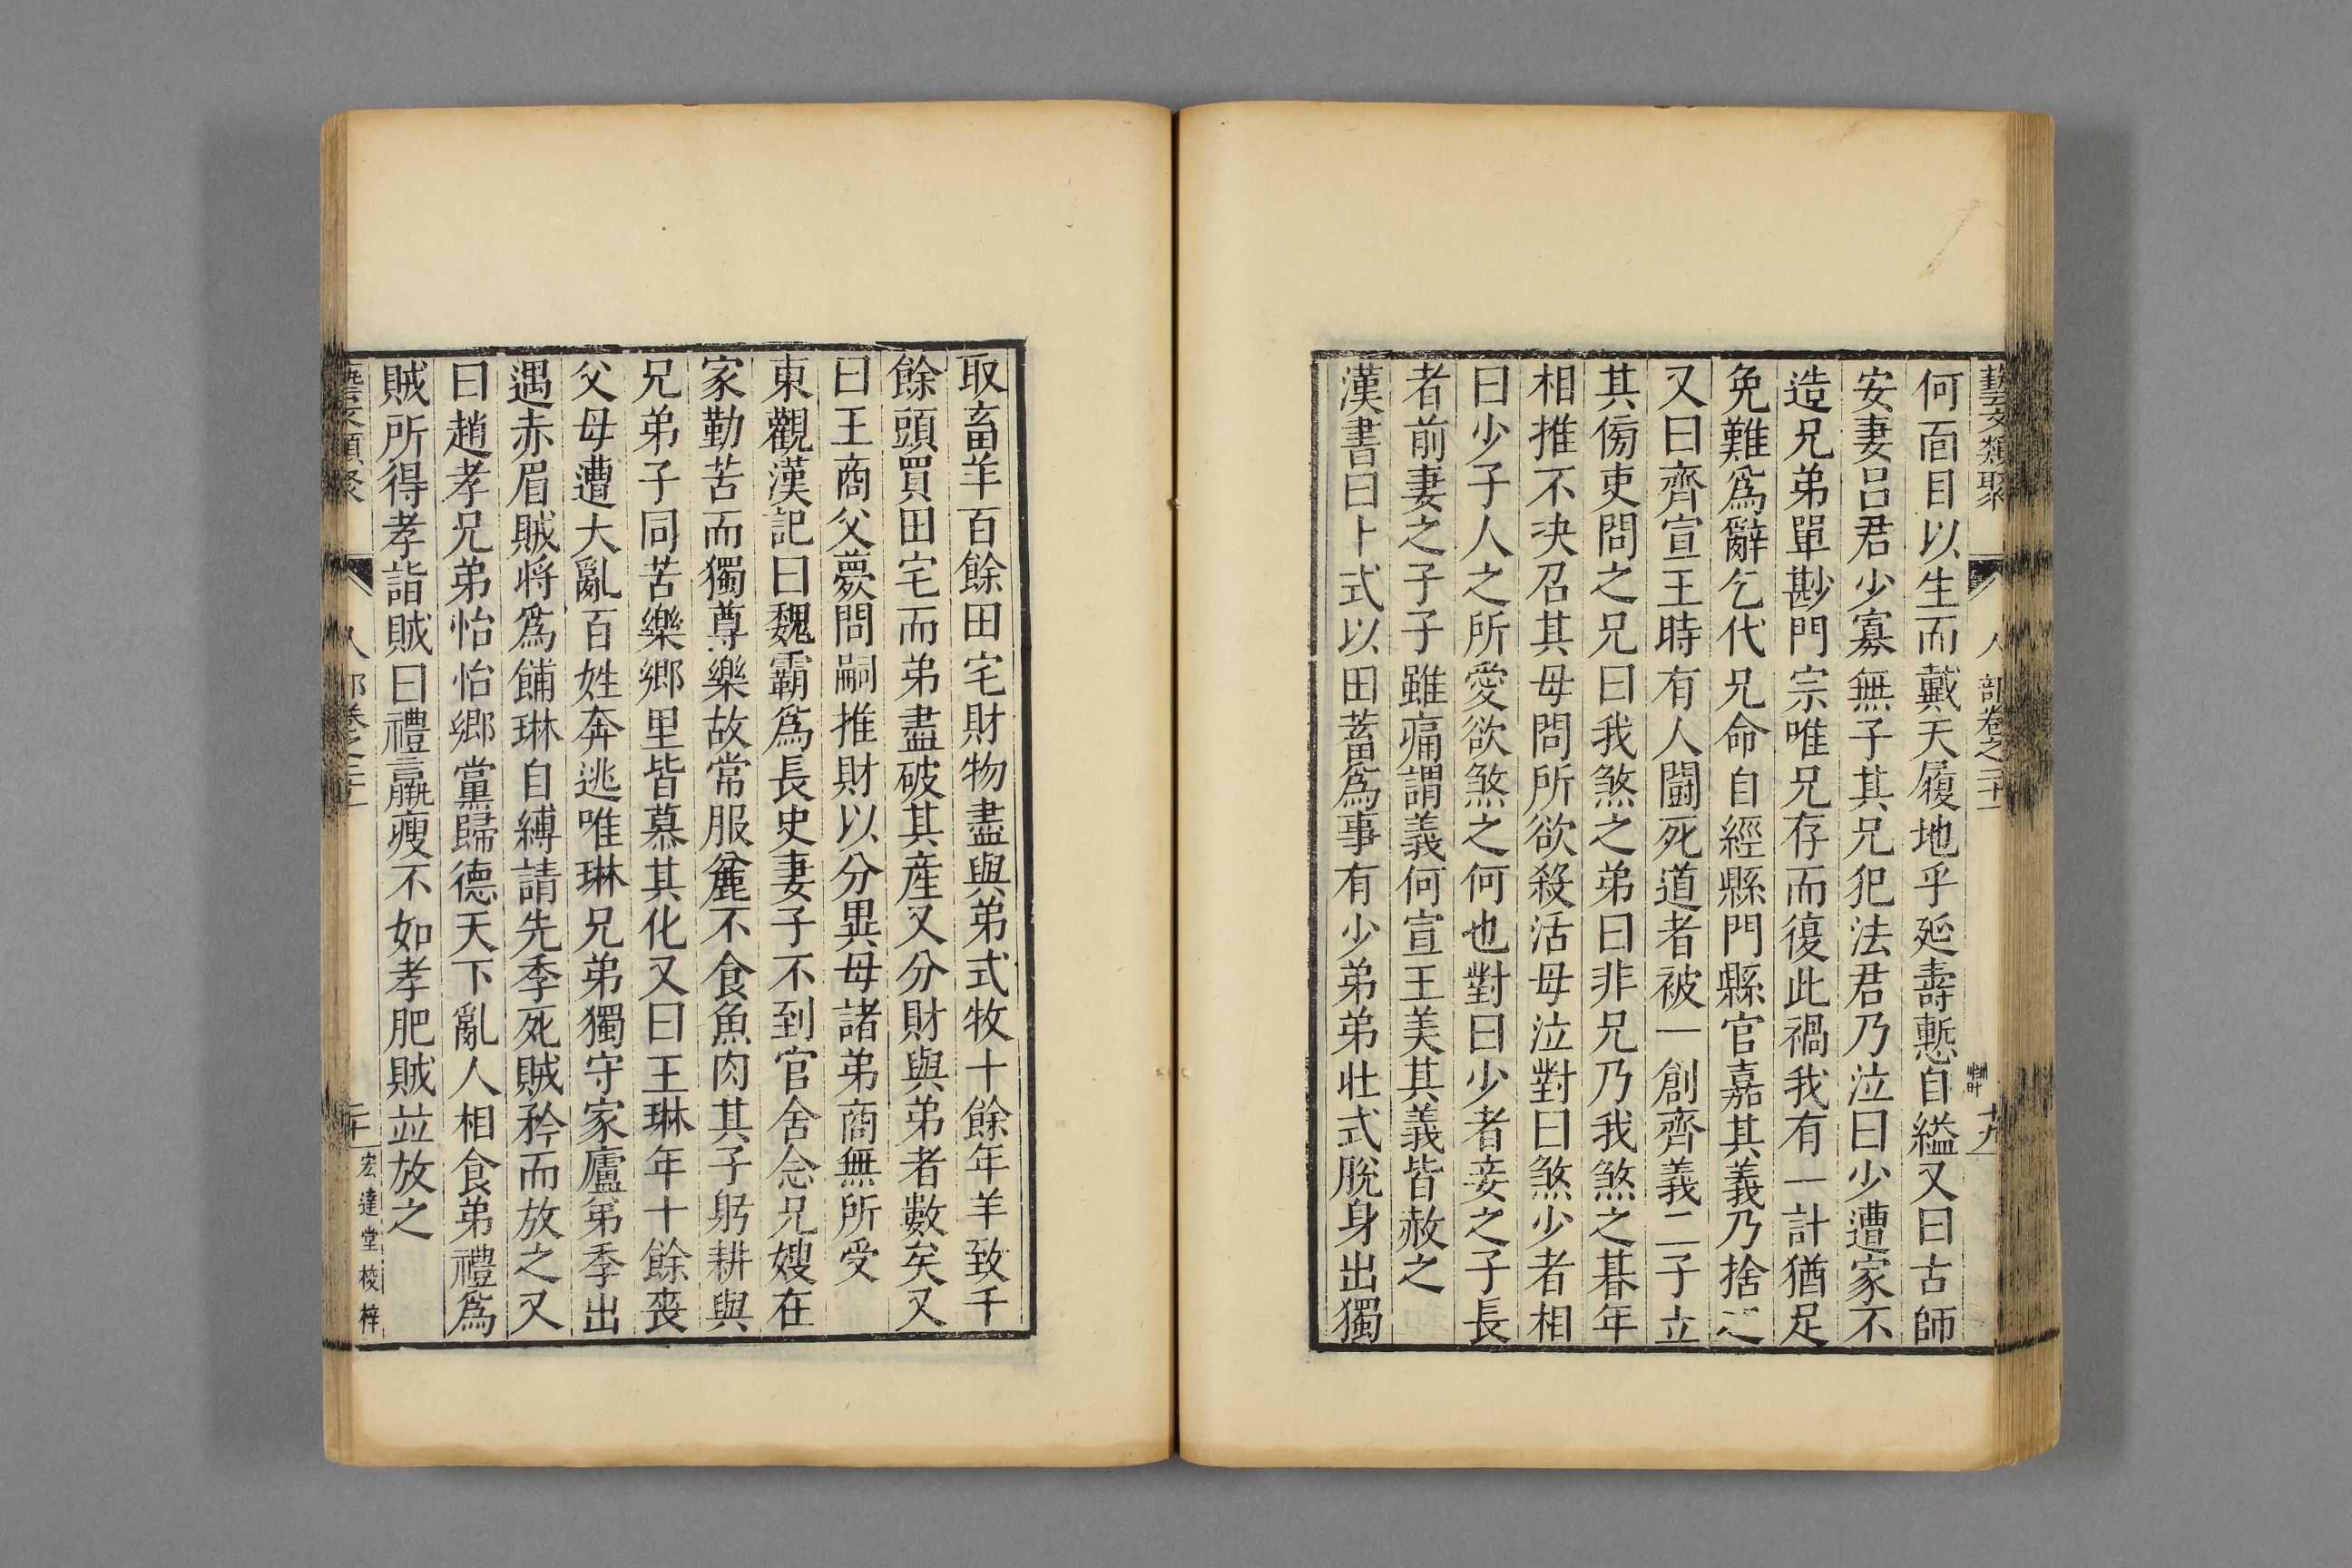 藝文類聚 人部卷之二十一 十九
何面目以生而戴天履地乎延壽慙自縊又曰古師
安妻呂君少寡無子其兄犯法君乃泣曰少遭家不
造兄弟單尠門宗唯兄存而復此禍我有一計猶足
免難爲辭乞代兄命自經縣門縣官嘉其義乃捨之
又曰齊宣王時有人鬬死道者被一創齊義二子立
其傍吏問之兄曰我煞之弟曰非兄乃我煞之朞年
相推不决召其母問所欲殺活母泣對曰煞少者相
曰少子人之所愛欲煞之何也對曰少者妾之子長
者前妻之子子雖痛謂義何宣王美其義皆赦之
漢書曰卜式以田蓄爲事有少弟弟壯式脫身出獨
取畜羊百餘田宅財物盡與弟式牧十餘年羊致千
餘頭買田宅而弟盡破其產又分財與弟者數矣又
曰王商父薨問嗣推財以分異母諸弟商無所受
東觀漢記曰魏霸爲長史妻子不到官舍念兄嫂在
家勤苦而獨尊樂故常服麄不食魚肉其子躬耕與
兄弟子同苦樂鄉里皆慕其化又曰王琳年十餘喪
父母遭大亂百姓奔逃唯琳兄弟獨守家廬弟季出
遇赤眉賊將爲餔琳自縛請先季死賊矜而放之又
曰趙孝兄弟怡怡鄉黨歸德天下亂人相食弟禮爲
賊所得孝詣賊曰禮羸瘦不如孝肥賊並放之
藝文類聚 人部卷之二十一 二十 宏達堂校梓